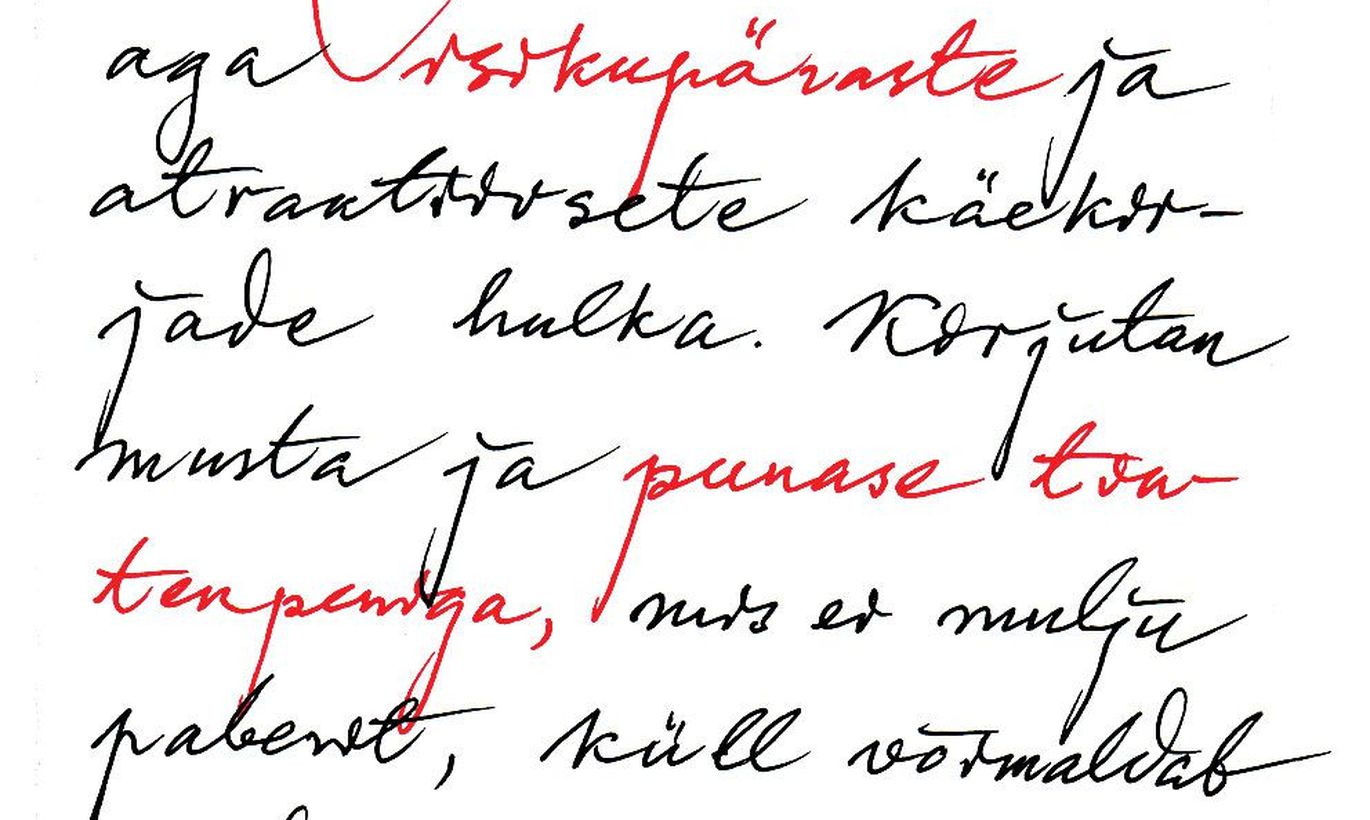 aga isikupäraste ja
atraktiivsete käekir-
jade hulka. Kirjutan
musta ja punase tin-
tenpeniga, mis ei mulju
paberit, küll võimaldab